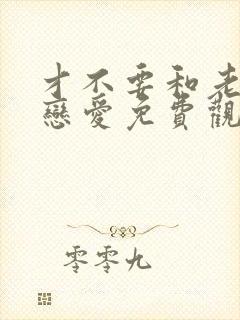 才不要和老
戀愛免費觀
零零九